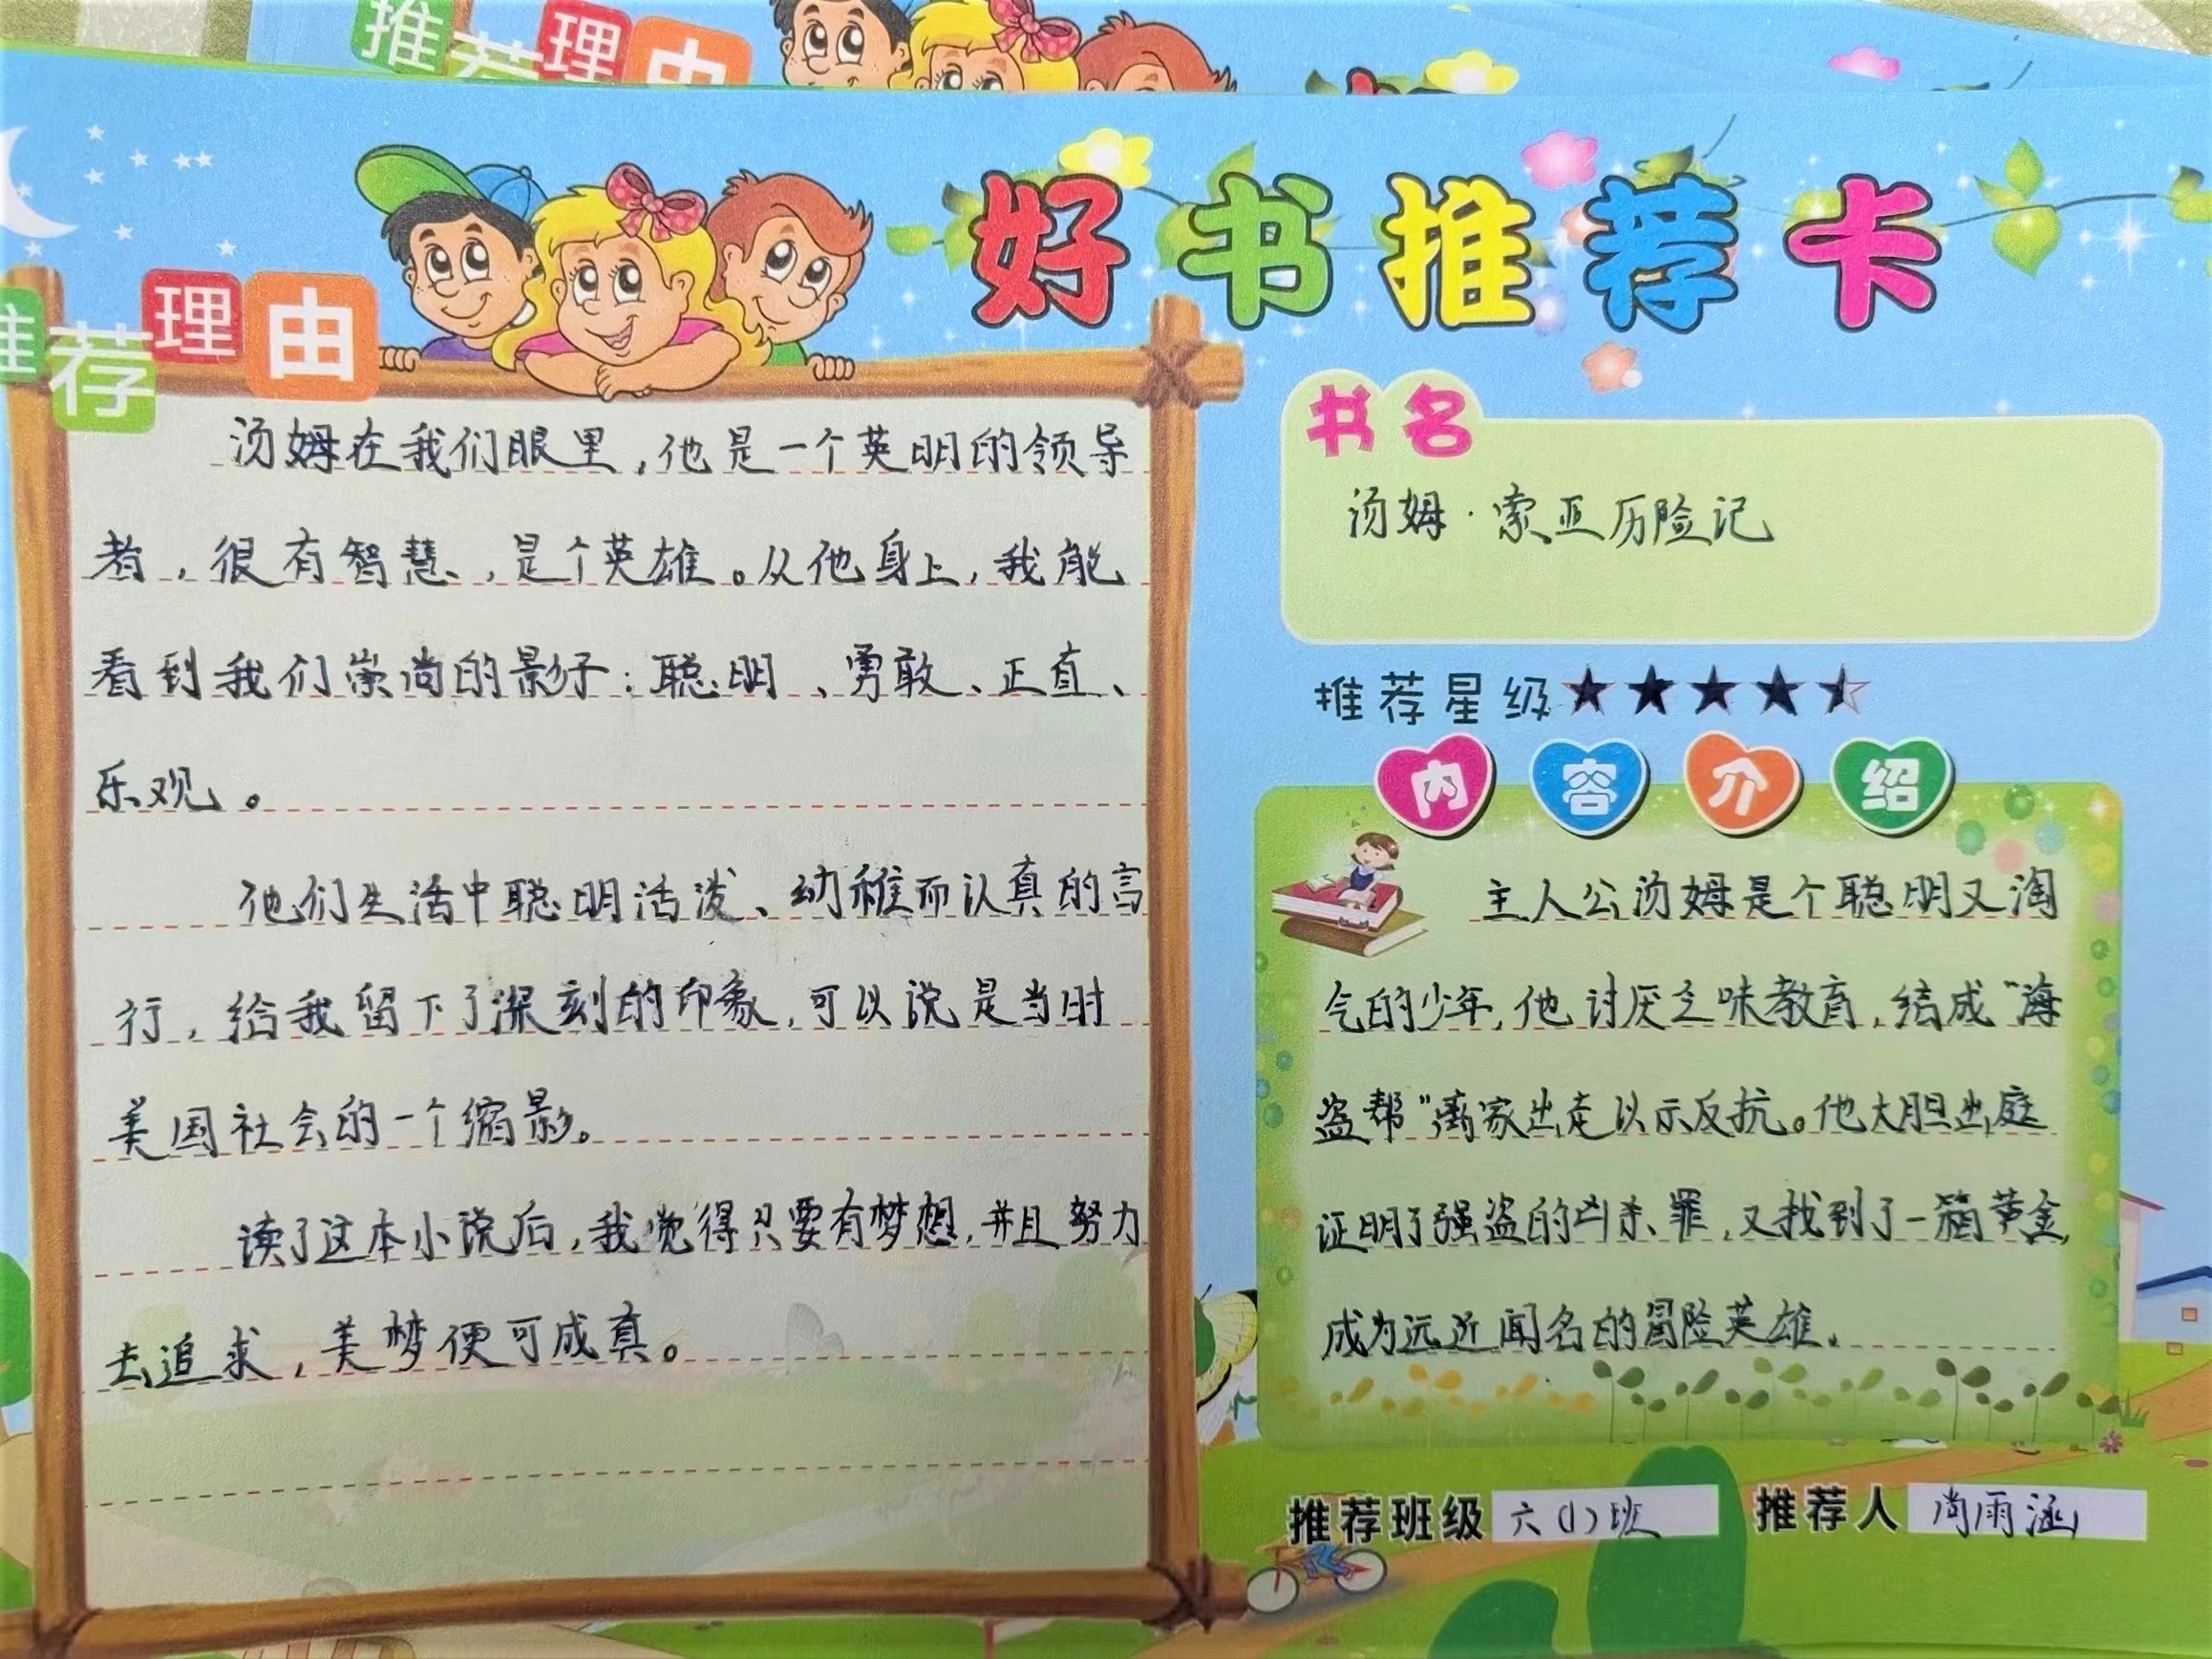 推荐理由
好书推荐卡
推荐理由
汤姆在我们眼里,他是一个英明的领导
者,很有智慧,是个英雄。从他身上,我能
看到我们崇尚的影仔:聪明、勇敢、正直、
乐观。
他们生活中聪明活泼、幼稚而认真的言
行,给我留下了深刻的印象,可以说是当时
美国社会的一个缩影。
读了这本小说后,我觉得只要有梦想,并且努力
去追求,美梦便可成真。
书名
汤姆·索亚历险记
推荐星级
内容介绍
主人公汤姆是个聪明又淘
气的少年,他讨厌乏味教育,结成“海
盗帮”离家出走以示反抗。他大胆出庭
证明了强盗的凶杀罪,又找到了一箱黄金,
成为远近闻名的冒险英雄。
推荐班级 六(1)班 推荐人 尚雨涵